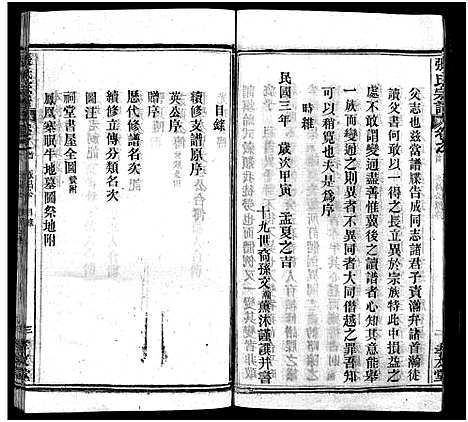 張氏宗譜
父志也茲當譜牒告成同志諸君子責瀚弁諸首瀚
讀父書何敢以一得之長立異於宗族特此中損益之
不敢謂變通盡善惟冀後之讀譜者仰知其意能舉
一族而變通之則異者不異同者大同僭越之罪吾知
可以稍寬也夫是爲序
時維
民國三年 歲次甲寅 孟夏之吉
十九世裔孫文瀚薰沐謹譔并書
孝友堂
目錄
續修支譜原序
英公序
贈序
歷代修譜名次記
續修立傳分類名次
圖注
祠堂書屋全圖 贊附
鳳凰寨眠牛地墓圖祭地附
目錄
三